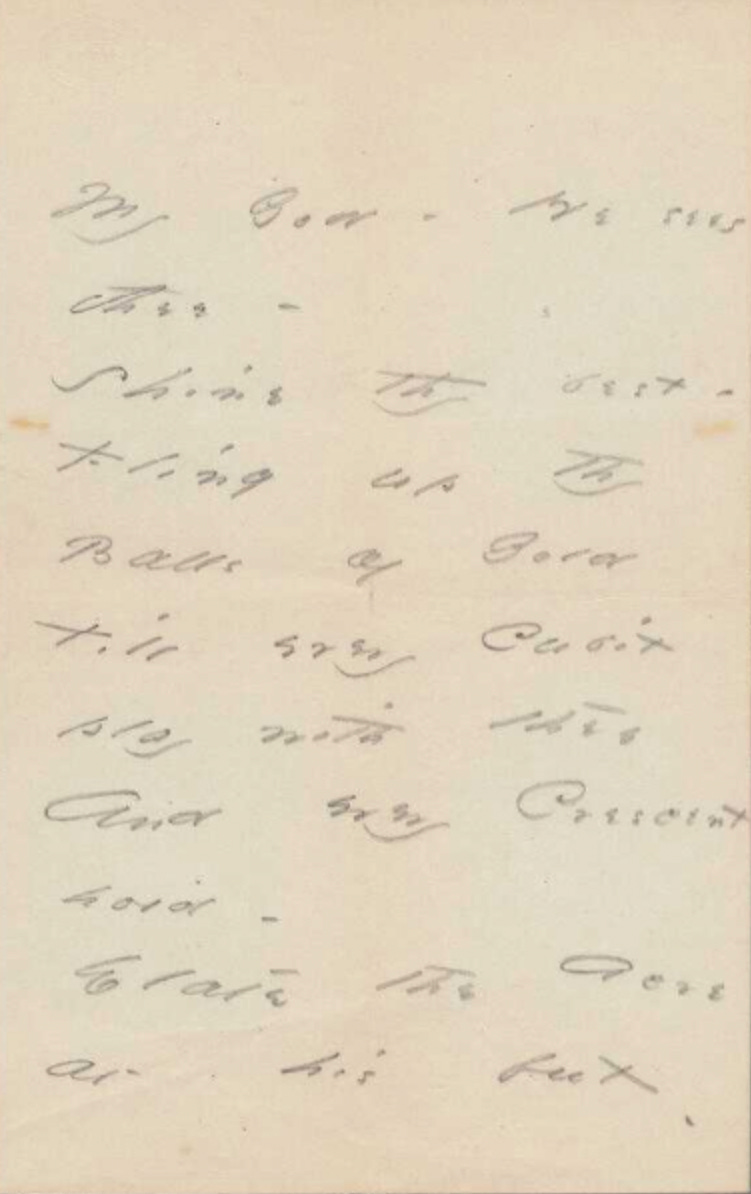 My God - He sees
thee -
Shine thy best -
Fling up thy
Balls of Gold
Till every Cubit
play with thee
And every Crescent
hold -
Elate the Acre
at his feet -